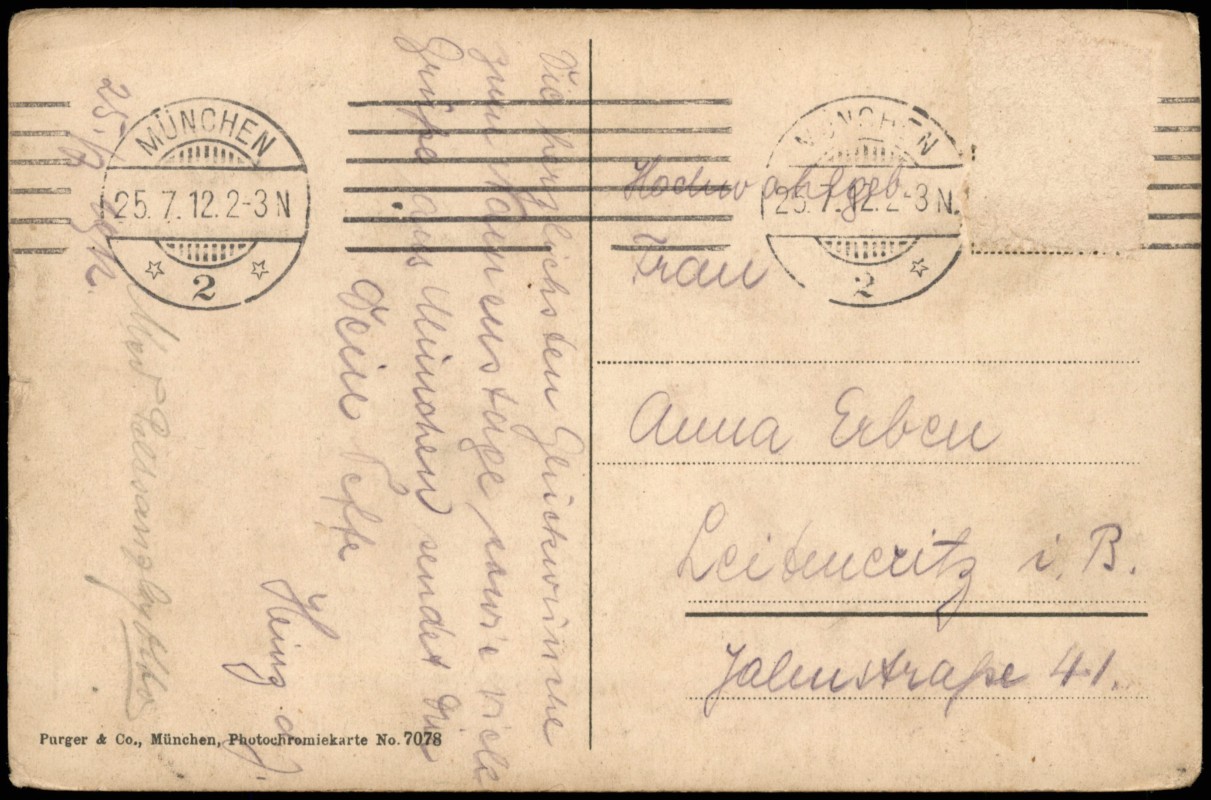 25. 7. 1912.
Die herzlichsten Glückwünsche
zum Namenstage sowie viele
Grüße aus München sendet Dir
Dein Neffe
Heinz d. J.
MÜNCHEN
25.7.12.2-3N
2
MÜNCHEN
25.7.12.2-3N.
2
Hochwohlgeb.
Frau
Anna Erben
Leitmeritz i. B.
Jahnstraße 41.
Purger & Co., München, Photochromiekarte No. 7078